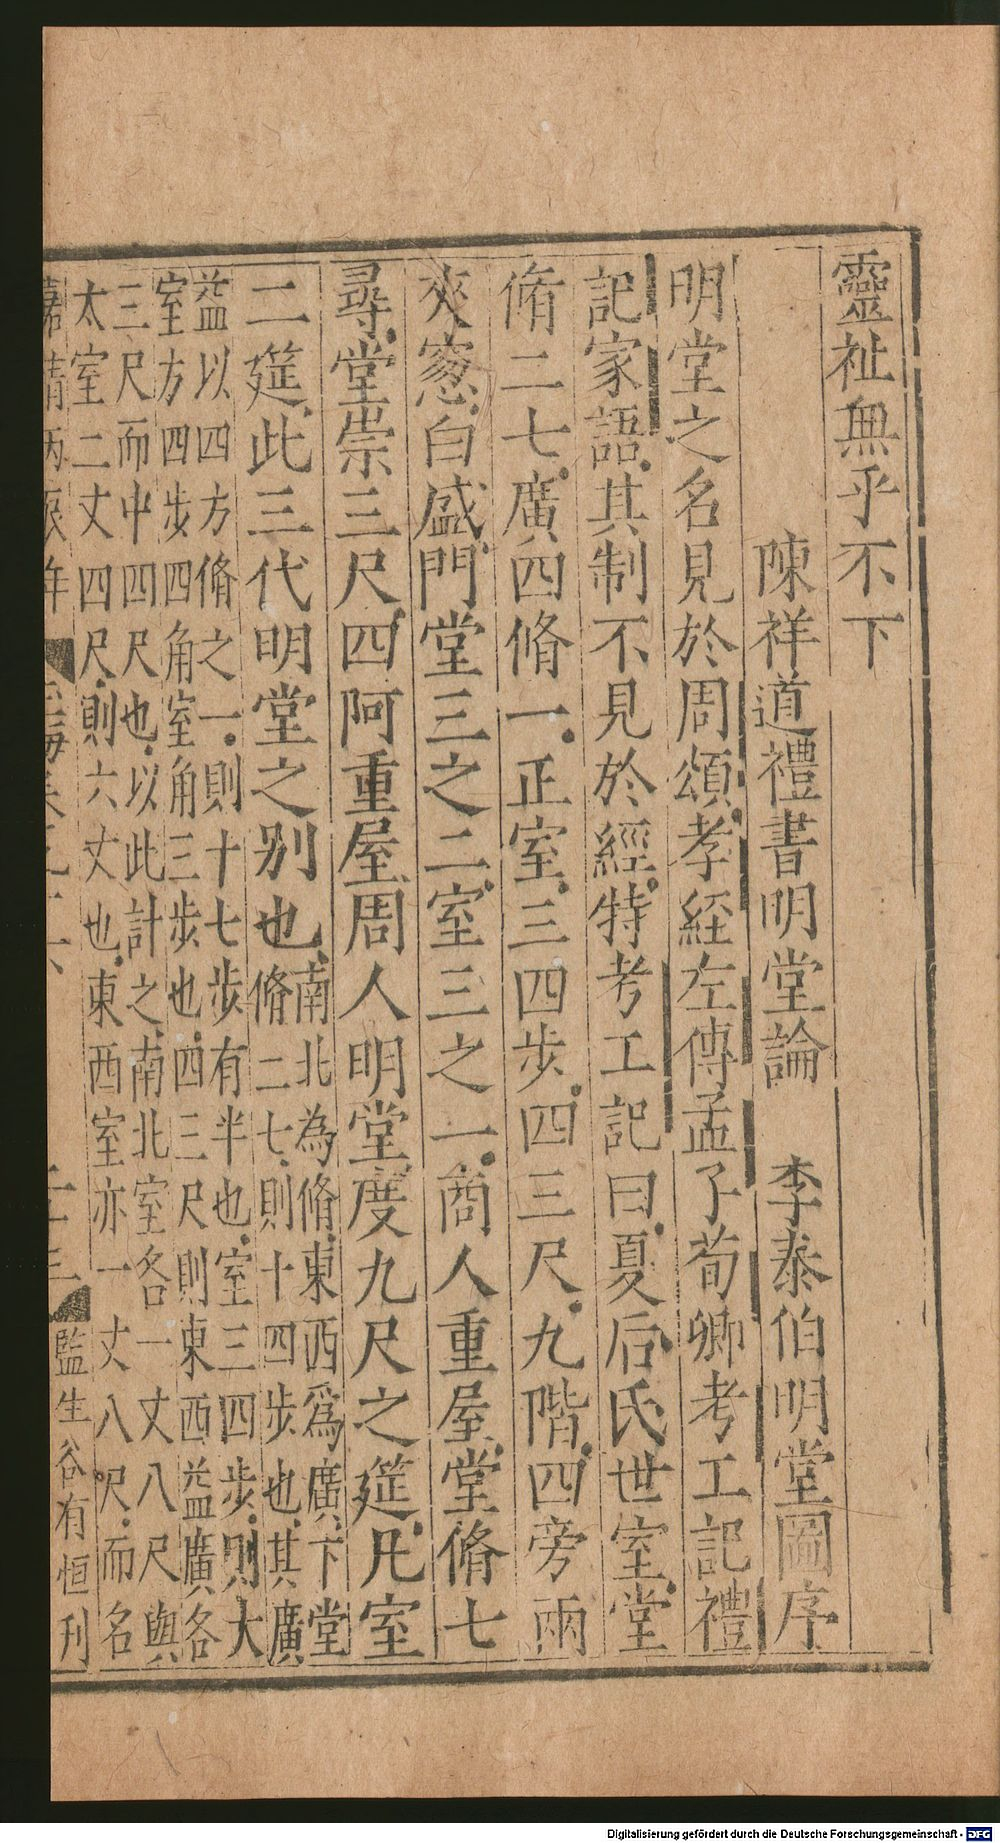 靈祉無乎不下
陳祥道禮書明堂論 李泰伯明堂圖序
明堂之名見於周頌孝經左傳孟子荀卿考工記禮
記家語其制不見於經特考工記曰夏后氏世室堂
脩二七廣四脩一正室三四步四三尺九階四旁兩
夾窻白盛門堂三之二室三之一商人重屋堂脩七
尋堂崇三尺四阿重屋周人明堂度九尺之筵凡室
二筵此三代明堂之别也
南北為脩東西爲廣下堂
脩二七則十四步也其廣
益以四方脩之一則十七步有半也室三四步則大
室方四步四角室角三步也四三尺則東西益廣各
三尺而中四尺也以此計之南北室各一丈八尺與
太室二丈四尺則六丈也東西室亦一丈八尺而名
嘉靖丙辰年
監生谷有恒刊
Digitalisierung gefördert durch die Deutsche Forschungsgemeinschaft - DFG